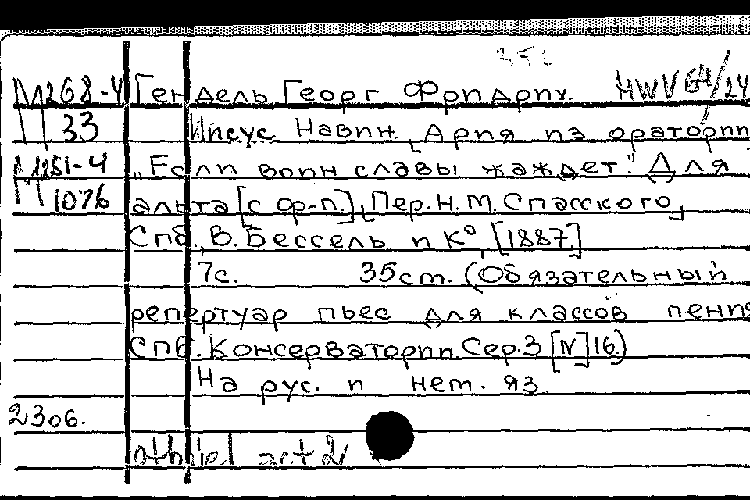 М268-4 Гендель Георг Фридрих. HWV 64/24
33 Иисус Навин. Ария из оратории
М1181-4 „Если воин славы жаждет." Для
1076 альта [с ф-п.] [Пер. Н.М. Спасского]
Спб., В. Бессель и К⁰, [1887]
7с. 35ст. (Обязательный
репертуар пьес для классов пения
Спб. Консерватории. Сер. 3 [№] 16)
На рус. и нем. яз.
2306.
othniel act 2